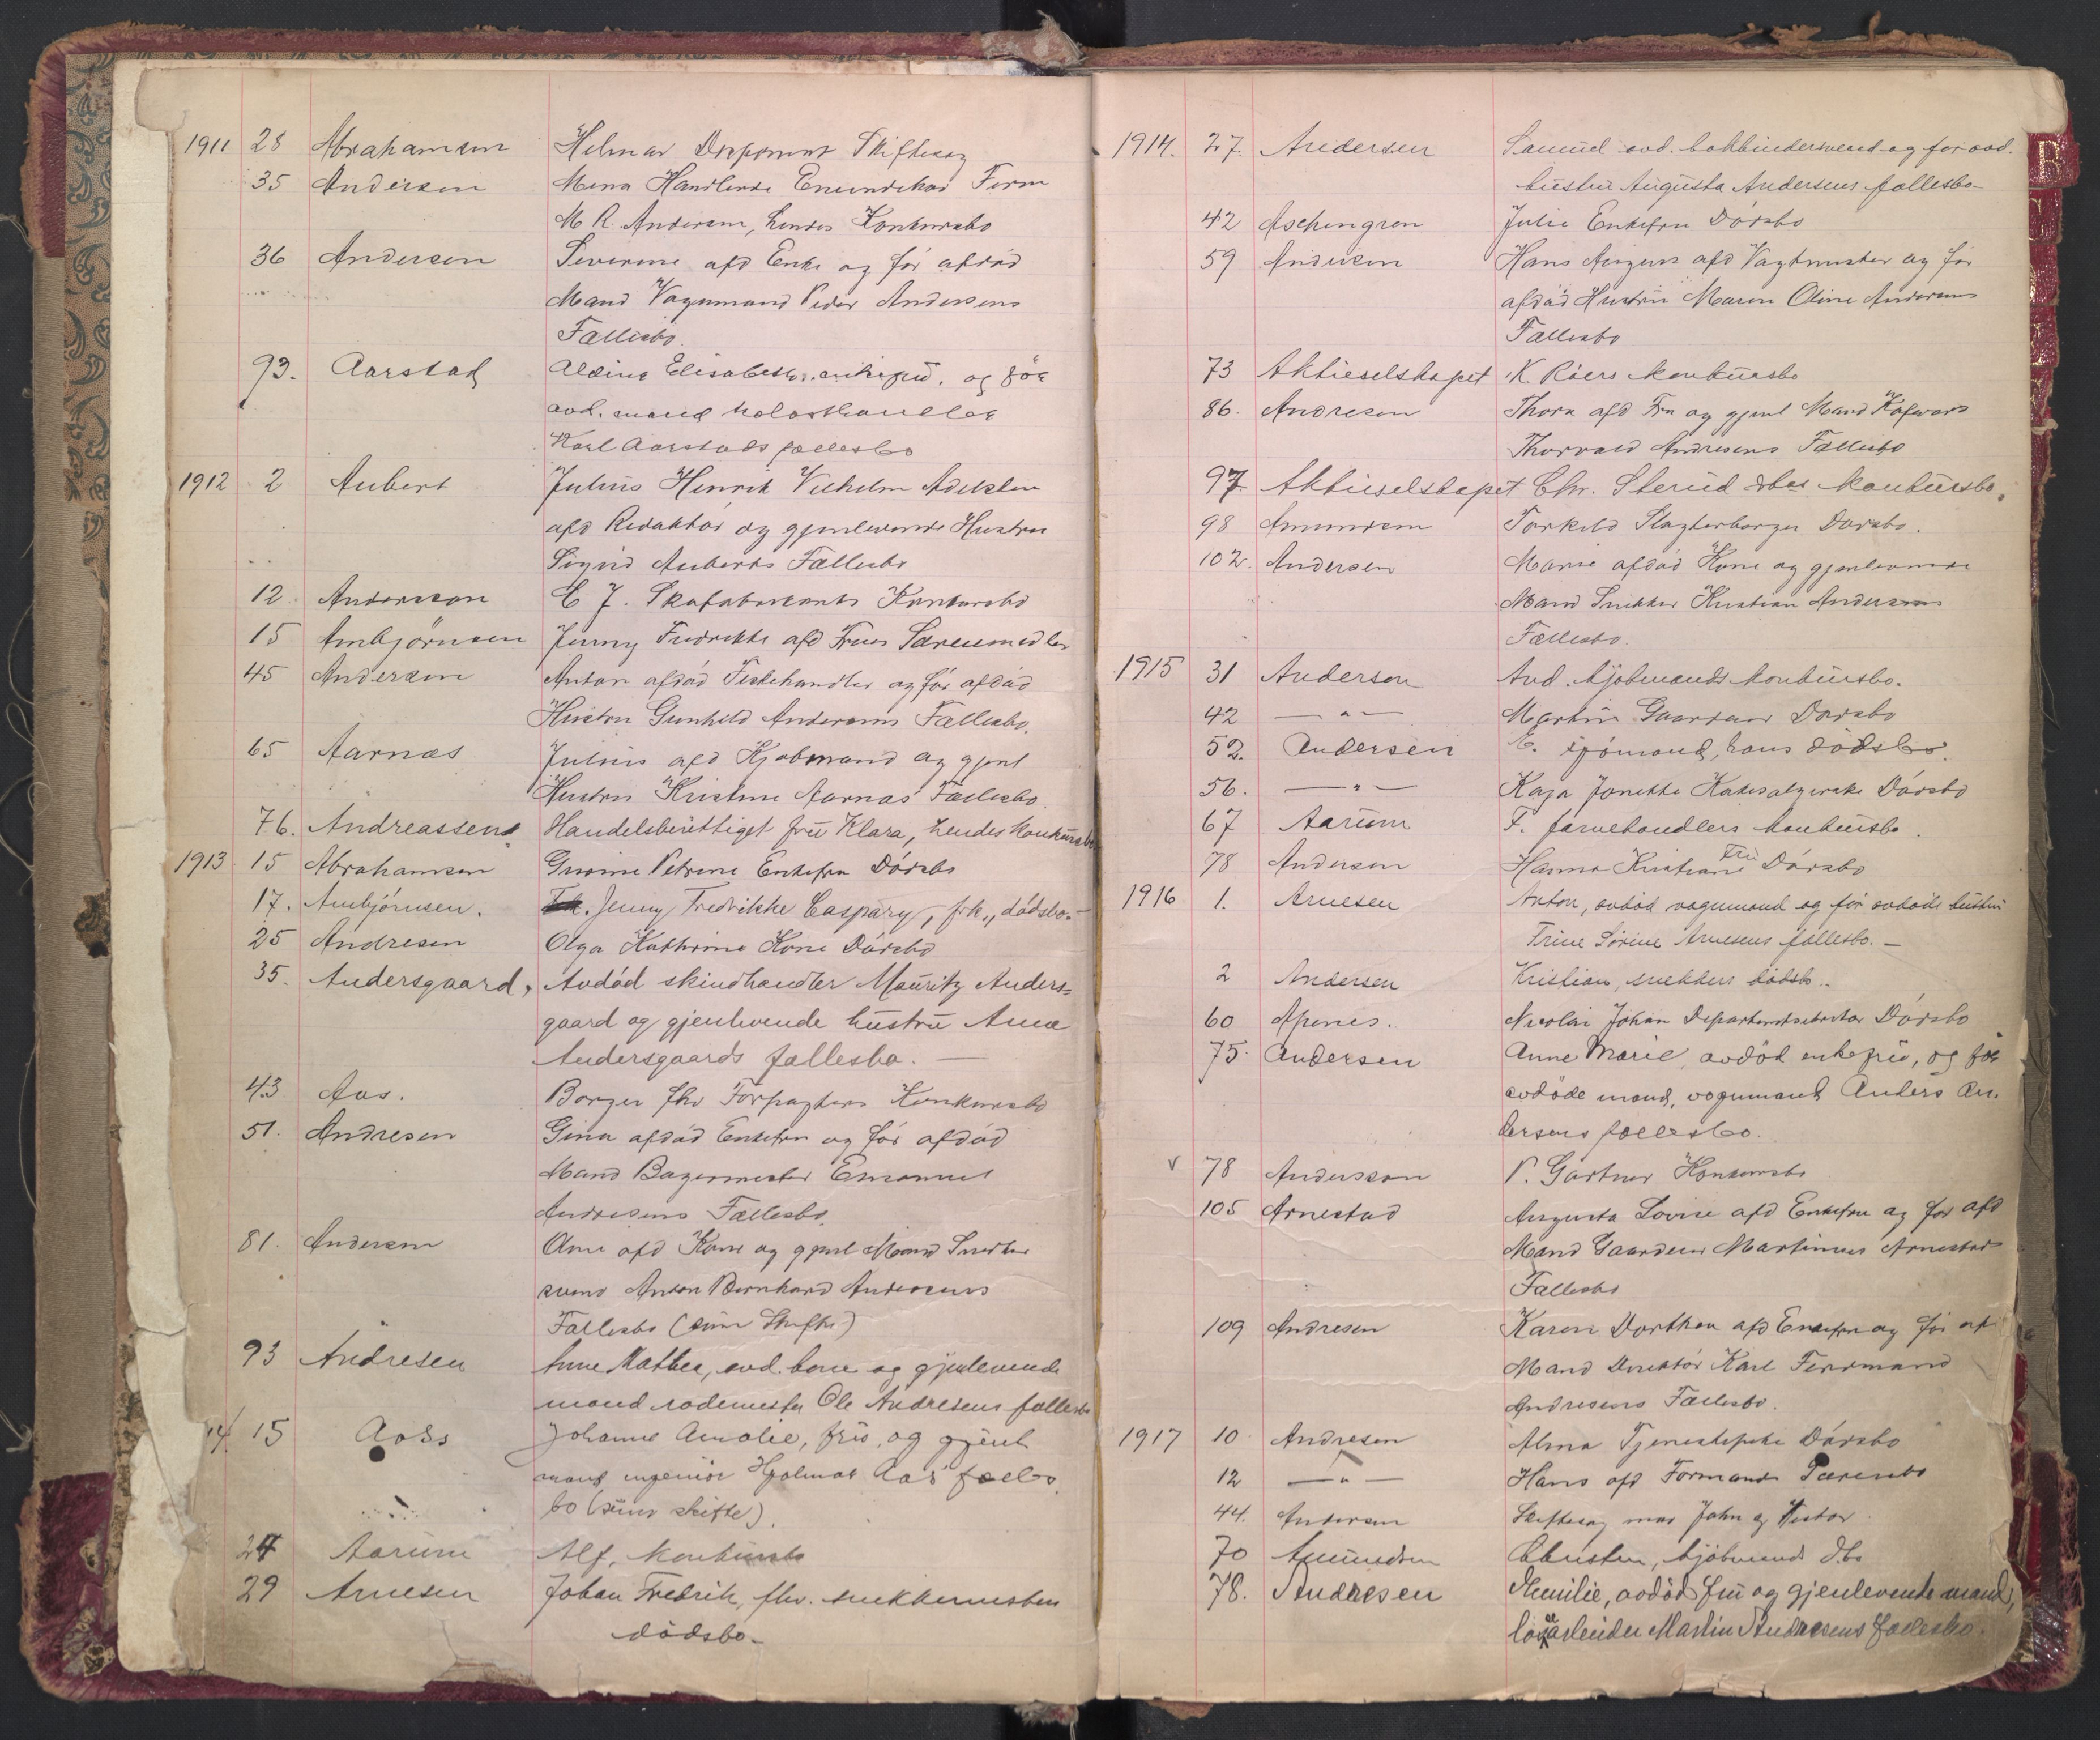 1911 28 Abrahamsen Helmar Skiftesag
35 Andersen Mina Handlende Enendehar Firm
M R. Andersen, hendes Konkursbo
36 Andersen Severine afd Enke og før afdød
Mand Vognmand Peder Andersens
Fællesbo.
93. Aarstad Aldine Elisabeth, enkefru. og før
avd. mand
Karl Aarstads fællesbo
1912 2 Aubert Julius Henrik Vilhelm
afd Redaktør og gjenlevende Hustru
Sigrid Auberts Fællesbo
12 Andersson C J. Skofabrikants Konkursbo
15 Ambjørnsen Jenny Fredrikke afd Frues
45 Andersen Anton afdød Fiskehandler og før afdød
Hustru Gunhild Andersens Fællesbo.
65 Aarnæs Julius afd Kjøbmand og gjenl
Hustru Kristine Aarnæs Fællesbo.
76. Andreassens Handelsberettiget frü Klara, hendes konkursbo
1913 15 Abrahamsen Petrine Enkefru Dödsbo
17. Ambjörnsen. Jenny Fredrikke Caspary, frk., dødsbo.-
25 Andresen Olga Kathrine Kone Dødsbo
35. Andersgaard, Avdød skindhandler Mauritz Anders=
gaard og gjenlevende hustru Anna
Andersgaards fællesbo. —
43 Aas. Borger fhv Forpagters Konkursbo
51. Andresen Gina afdød Enkefru og før afdød
Mand Bagermester Emanuel
Andresens Fællesbo.
81. Andersen afd Kone og gjenl Mand Snedker
svend Anton Bernhard Andersens
Fællesbo (sine Skifte)
93 Andresen Anne Mathea, avd. kone og gjenlevende
mand rodemester Ole Andresens fællesbo
14 15 Aass Johanne Amalie, frü, og gjenl
mand ingeniør Hjalmar Aas' fælles
bo (sine skifte).
24 Aarum Alf, konkursbo
29 Arnesen Johan Fredrik, fhv. snekkermesters
dødsbo-
1914. 27. Andersen Samuel avd. bokbindersvend og før avd.
hustru Augusta Andersens fællesbo-
42 Aschengren Julie Enkefru Dödsbo
59 Andersen Hans August afd Vagtmester og før
afdød Hustru Maren Oline Andersens
Fællesbo
73 Aktieselskapet K. Röers konkursbo
86. Andresen Thora afd Fru og gjenl Mand
Thorvald Andresens Fællesbo
97. Aktieselskapet Chr. Sterud konkursbo.
98 Amundsen Torkild Slagterborger Dødsbo.
102. Andersen Marie afdød Kone og gjenlevende
Mand Snikker Kristian Andersens
Fællesbo.
1915 31 Anderson And. kjøbmands konkursbo.
42 — " — Martin Gaardeier Dødsbo
52. Andersen C. sjömand, hans dödsbo.
56. — " — Kaja Jonette Kakesælgerske Dödsbo
67 Aarum F. farvehandlers konkursbo.
78 Andersen Hanna Kristiane Frü Dödsbo
1916 1. Arnesen Anton, avdød vognmand og før avdøde hustru
Trine Sørine Arnesens fællesbo.—
2 Andersen Kristian, snekkers dødsbo.
60 Apenes. Nicolai Johan Departementssekretær Dødsbo
75. Andersen Anne Marie, avdöd enkefrü, og för
avdöde mand, vognmand Anders An.
dersens fællesbo.
v 78 Andersson P. Gartner Konkursbo
105 Arnestad Augusta Lovise afd Enkefru og før afd
Mand Gaardeier Martinius Arnestads
Fællesbo
109 Andresen Karen Dorthea afd Enkefru og før af
Mand Direktør Karl Ferdinand
Andresens Fællesbo.
1917 10 Andresen Alma Tjenestepike Dödsbo
12 — " — Hans afd Formands Særeiebo
44. Andersen Skiftesag mod John og Victor.
70 Amundsen Christen, kjöbmands d.bo
78. Andresen Emilie, avdöd frü og gjenlevende mand,
Martin Andresens fællesbo.